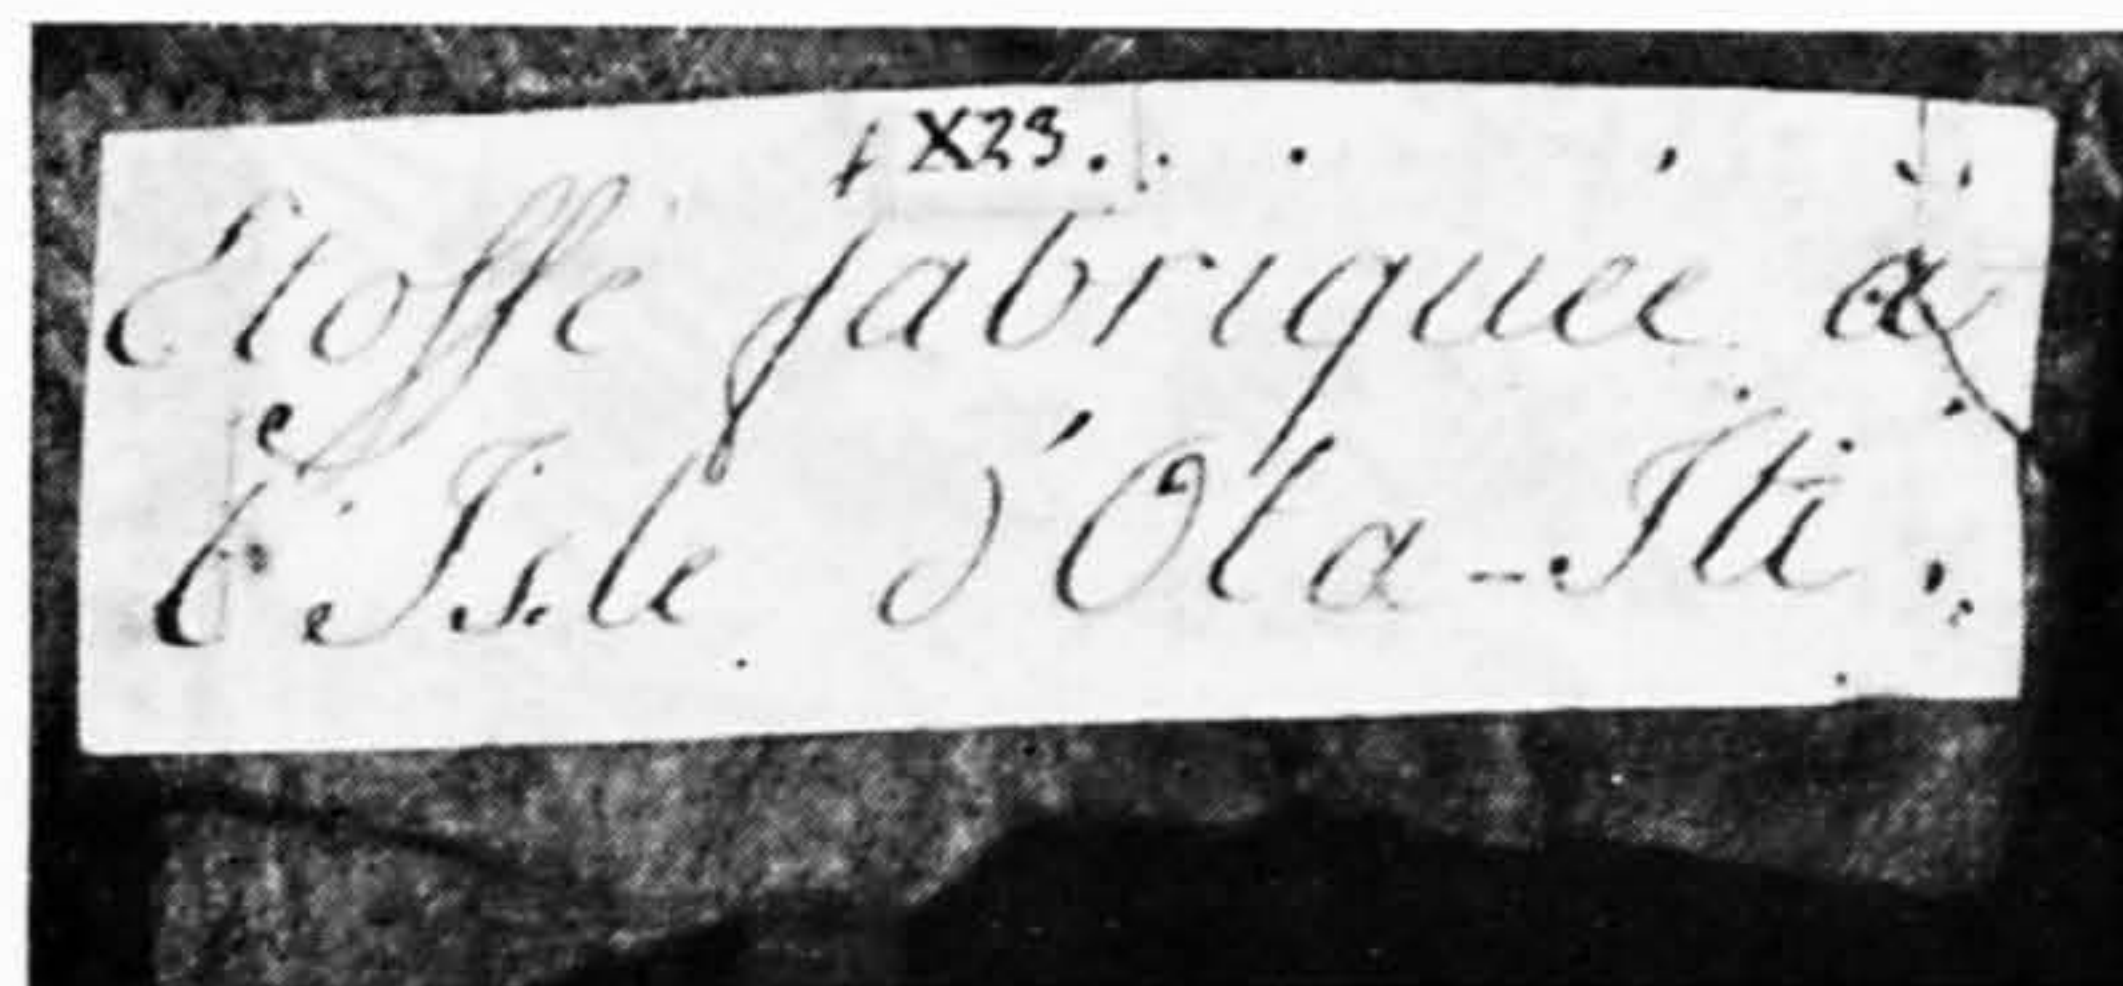 X23.
Etoffe fabriquée à
l'Isle d'Ota-Iti.